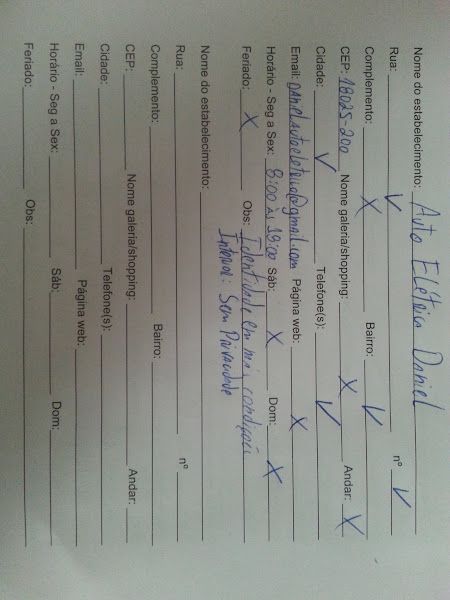 Nome do estabelecimento: Auto Elétrica Daniel
Rua: V nº V
Complemento: X Bairro: V
CEP: 18025-200 Nome galeria/shopping: X Andar: X
Cidade: V Telefone(s): V
Email: Danielautoeletrico@gmail.com Página web: X
Horário - Seg a Sex: 8:00 às 18:00 Sáb: X Dom: X
Feriado: X Obs: Identidade em más condições
Interior: Sem Privacidade
Nome do estabelecimento:
Rua: nº
Complemento: Bairro:
CEP: Nome galeria/shopping: Andar:
Cidade: Telefone(s):
Email: Página web:
Horário - Seg a Sex: Sáb: Dom:
Feriado: Obs: